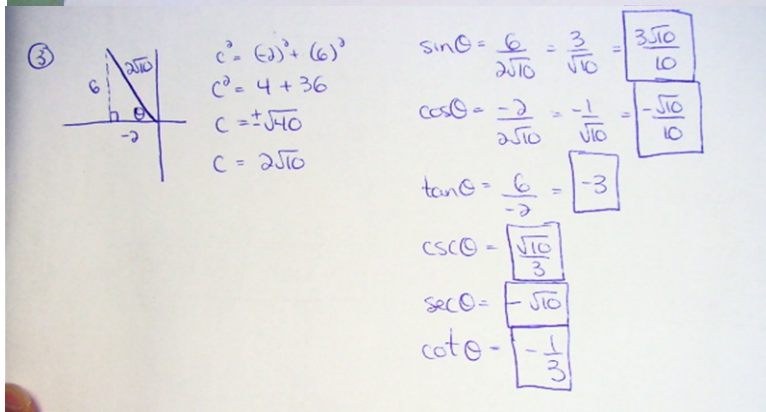 ③
2√10
6
θ
-2
c² = (-2)² + (6)²
c² = 4 + 36
c = ±√40
c = 2√10
sinθ = 6/2√10 = 3/√10 = 3√10/10
cosθ = -2/2√10 = -1/√10 = -√10/10
tanθ = 6/-2 = -3
cscθ = √10/3
secθ = -√10
cotθ = -1/3